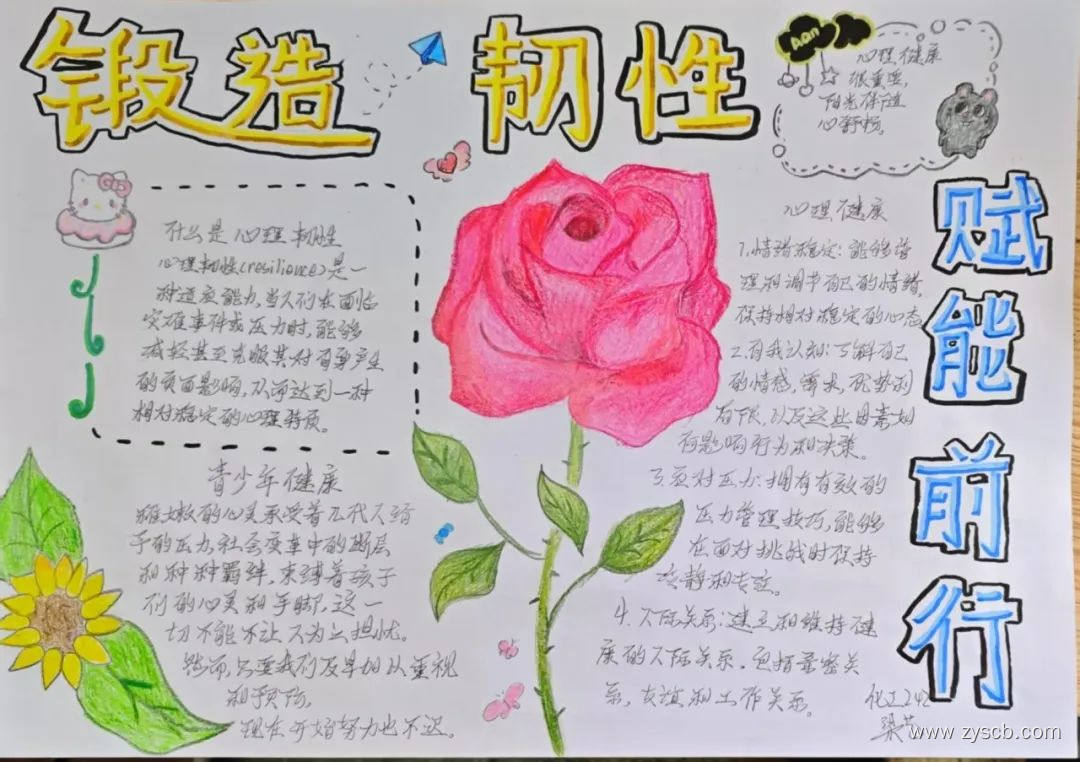 锻造韧性
赋能前行
Aan
心理健康
很重要，
阳光伴随
心舒畅。
什么是心理韧性
心理韧性(resilience)是一
种适应能力，当人们在面临
灾难事件或压力时，能够
减轻甚至克服其对自身产生
的负面影响，从而达到一种
相对稳定的心理特质。
青少年健康
稚嫩的心灵承受着几代人给
予的压力，社会变革中的断层
和种种羁绊，束缚着孩子
们的心灵和手脚，这一
切不能不让人为之担忧。
然而，只要我们及早加以重视
和预防，
现在开始努力也不迟。
心理健康
1.情绪稳定：能够管
理和调节自己的情绪，
保持相对稳定的心态
2.自我认知：了解自己
的情感，需求，优势和
局限，以及这些因素如
何影响行为和决策。
3.应对压力：拥有有效的
压力管理技巧，能够
在面对挑战时保持
冷静和专注。
4.人际关系：建立和维持健
康的人际关系，包括亲密关
系，友谊和工作关系。
化工242
梁
www.zyscb.com